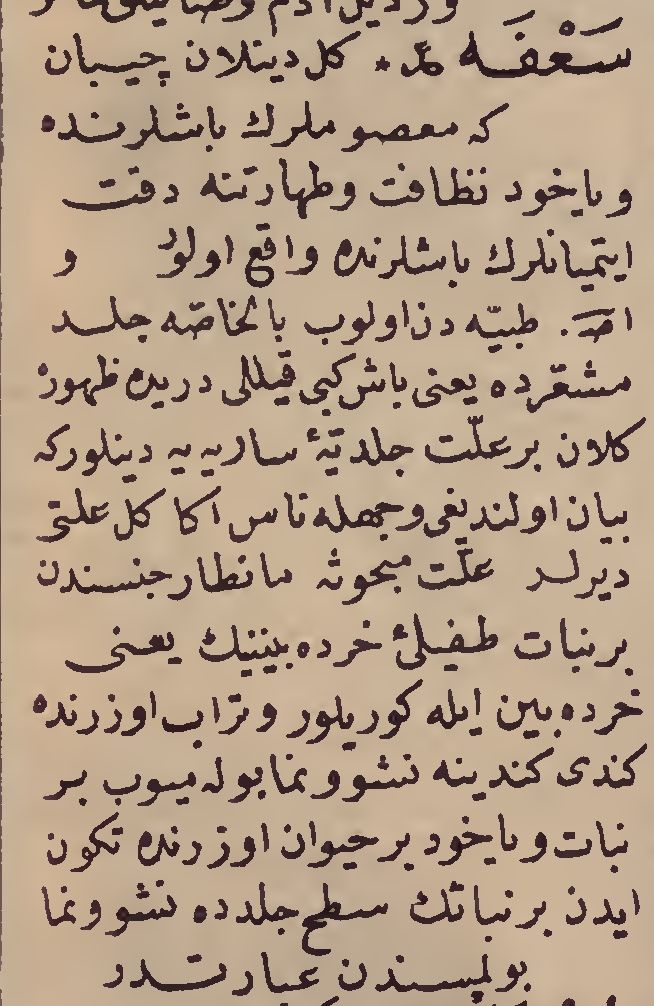 سَعْفَه عم * كل دينلان چيبان
كه معصوملرك باشلرنده
و ياخود نظافت و طهارتنه دقت
ايتميانلرك باشلرنده واقع اولوُر و
اصـ. طبيّه دن اولوب بالخاصّه جلد
مشعّرده يعنى باش كبى قيللى دريده ظهوره
كلان بر علّت جلديّۀ ساريه يه دينلوركه
بيان اولنديغى وجهله ناس اكا كل علتى
ديرلر علّت مبحوثه مانطار جنسندن
بر نبات طفيلئ خرده بينينك يعنى
خرده بين ايله كوريلور و تراب اوزرنده
كندى كندينه نشو و نما بوله ميوب بر
نبات و ياخود بر حيوان اوزرنده تكون
ايدن بر نباتك سطح جلدده نشو و نما
بولمسندن عبارتدر